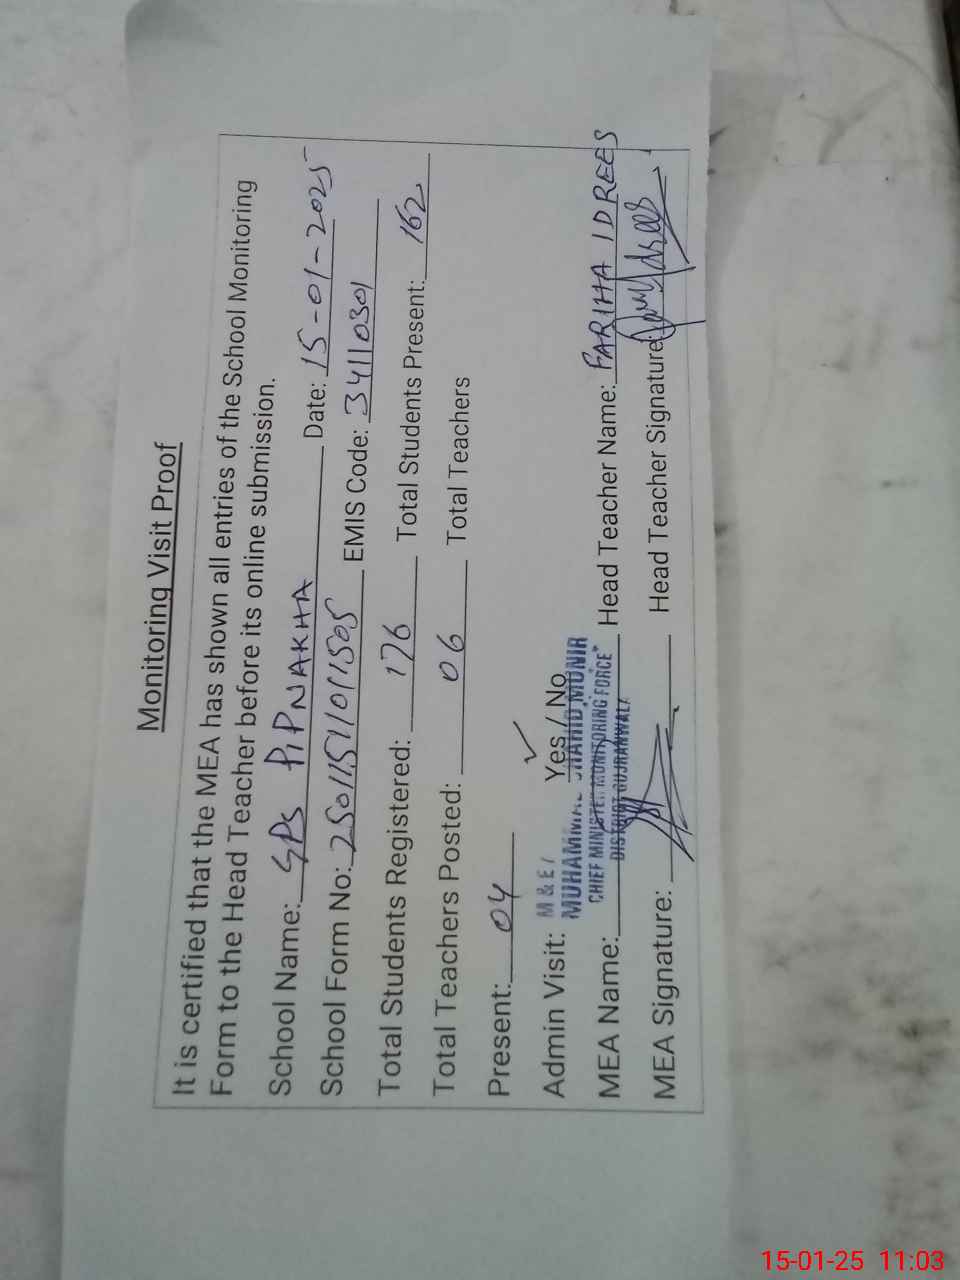 Monitoring Visit Proof
It is certified that the MEA has shown all entries of the School Monitoring
Form to the Head Teacher before its online submission.
School Name: GPS PIPNAKHA Date: 15-01-2025
School Form No: 25011511011505 EMIS Code: 34110301
Total Students Registered: 176 Total Students Present: 162
Total Teachers Posted: 06 Total Teachers
Present: 04
Admin Visit: Yes / No
M & E
MUHAMMAD SHAHID MUNIR
CHIEF MINISTER MONITORING FORCE"
DISTRICT GUJRANWALA
MEA Name: Head Teacher Name: FARIHA IDREES
MEA Signature: Head Teacher Signature:
15-01-25 11:03